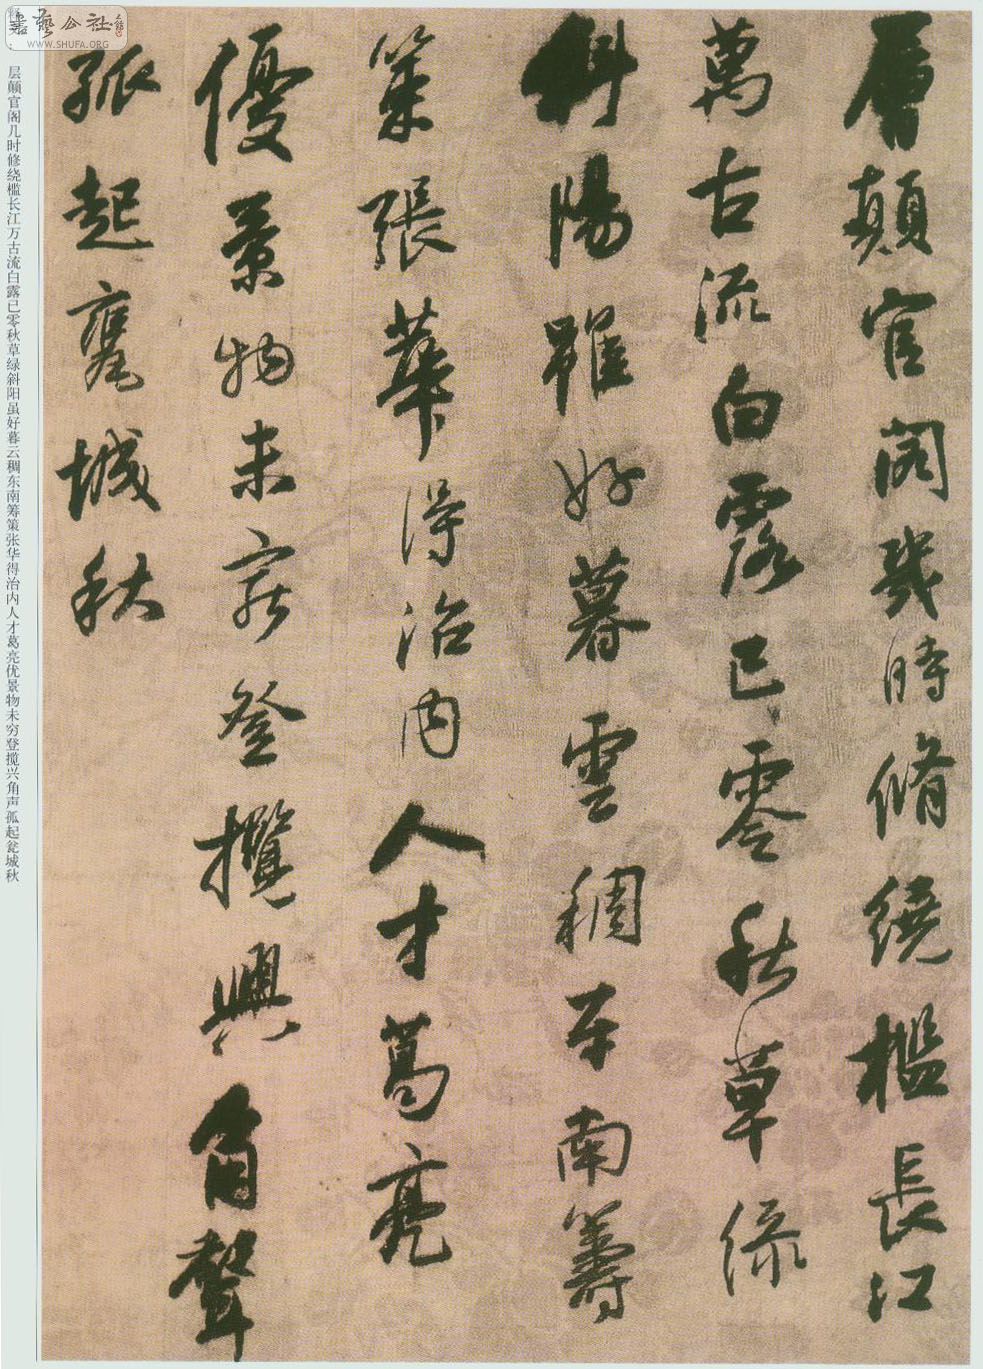 層顛官閣幾時脩繞檻長江
萬古流白露已零秋草綠
斜陽雖好暮雲稠東南籌
策張華得治內人才葛亮
優景物未窮登攬興角聲
孤起甕城秋
层颠官阁几时修绕槛长江万古流白露已零秋草绿斜阳虽好暮云稠东南筹策张华得治内人才葛亮优景物未穷登揽兴角声孤起瓮城秋
書藝公社
WWW.SHUFA.ORG